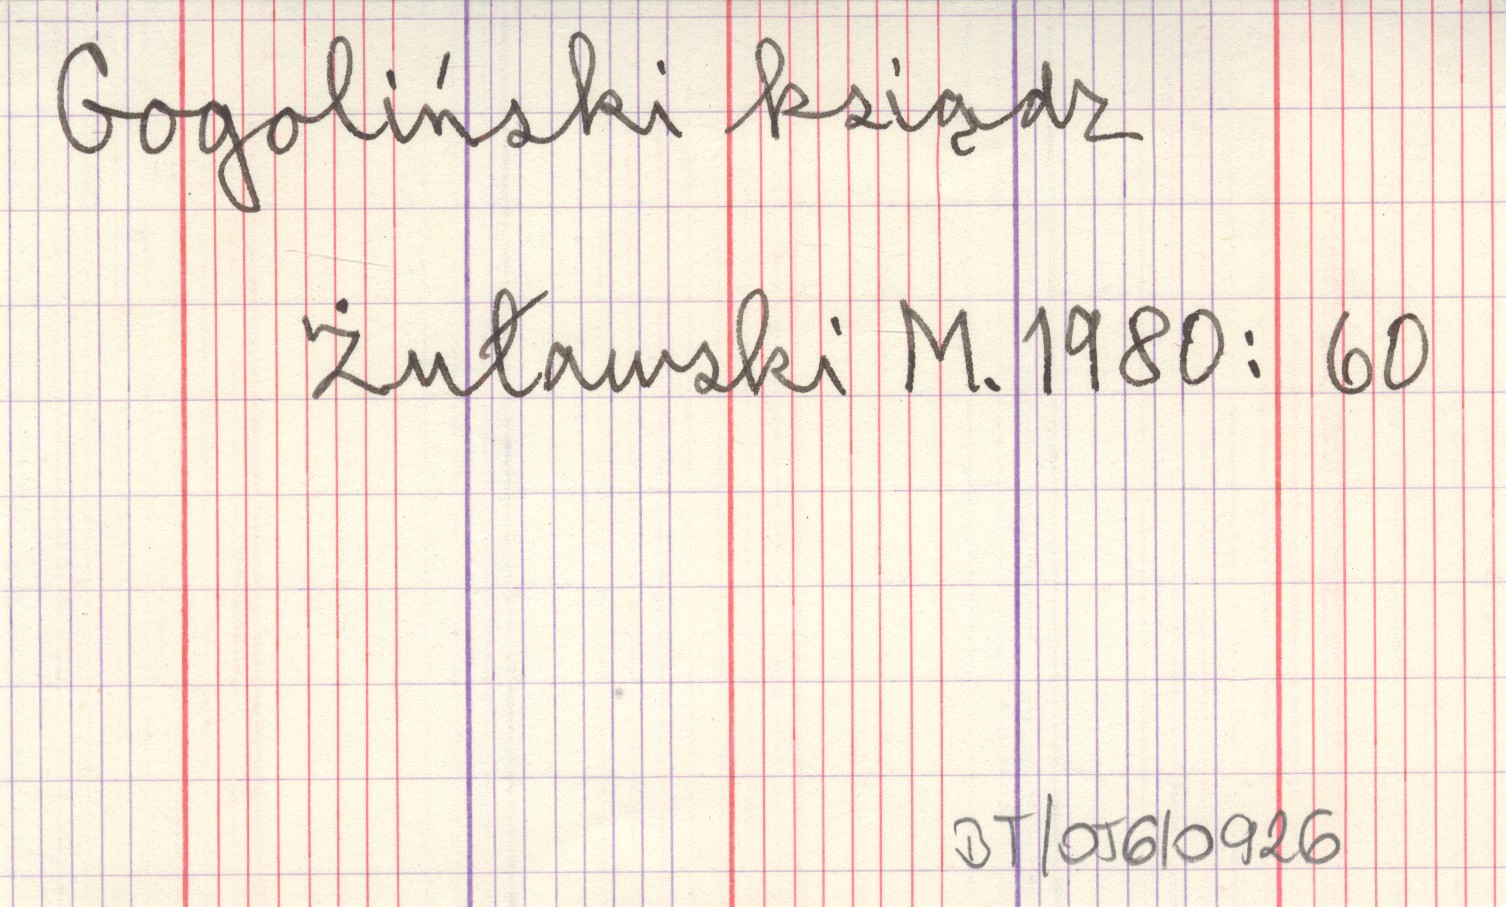 Gogoliński ksiądz
Żuławski M. 1980: 60
BT/OJ6/0926